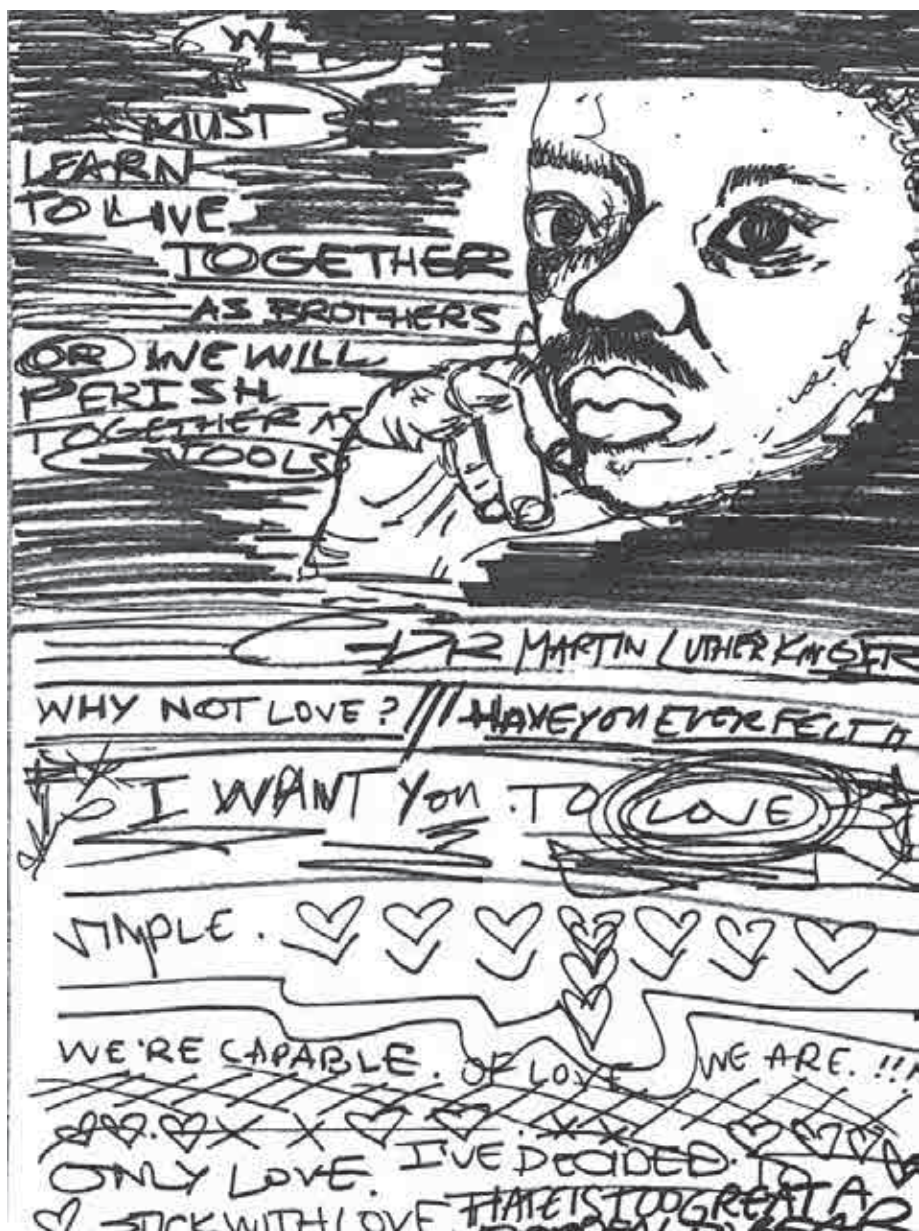 WE
MUST
LEARN
TO LIVE
TOGETHER
AS BROTHERS
OR WE WILL
PERISH
TOGETHER AS
FOOLS
-DR MARTIN LUTHER KING JR
WHY NOT LOVE? /// HAVE YOU EVER FELT IT
I WANT YOU TO LOVE
SIMPLE.
WE'RE CAPABLE. OF LOVE WE ARE.!!!
ONLY LOVE. I'VE DECIDED. TO
STICK WITH LOVE HATE IS TOO GREAT A